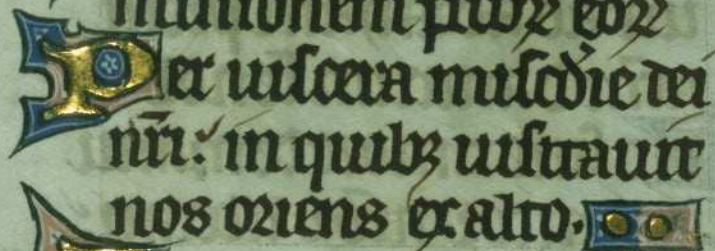 missionem pctoꝝ eoꝝ
Per uiscera miscd̓ie dei
nr̃i: in quibꝫ uisitauit
nos oriens ex alto.